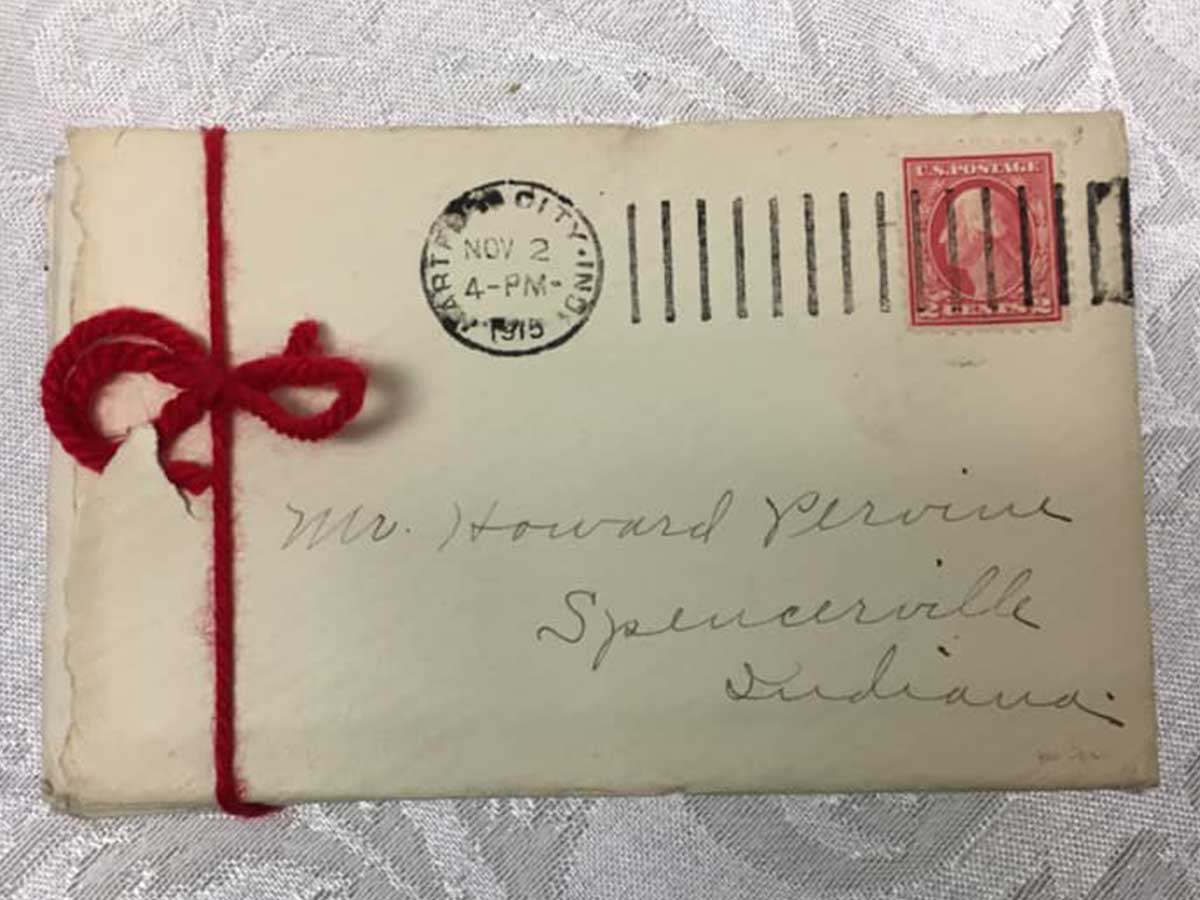 HARTFORD CITY · IND.
NOV 2
4-PM-
1915
U.S. POSTAGE
2 CENTS 2
Mr. Howard Pervine
Spencerville
Indiana.